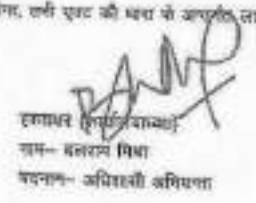 एक्ट की धारा के अन्तर्गत
हस्ताक्षर
नाम– बलराम मिश्रा
पदनाम– अधिशासी अभियन्ता